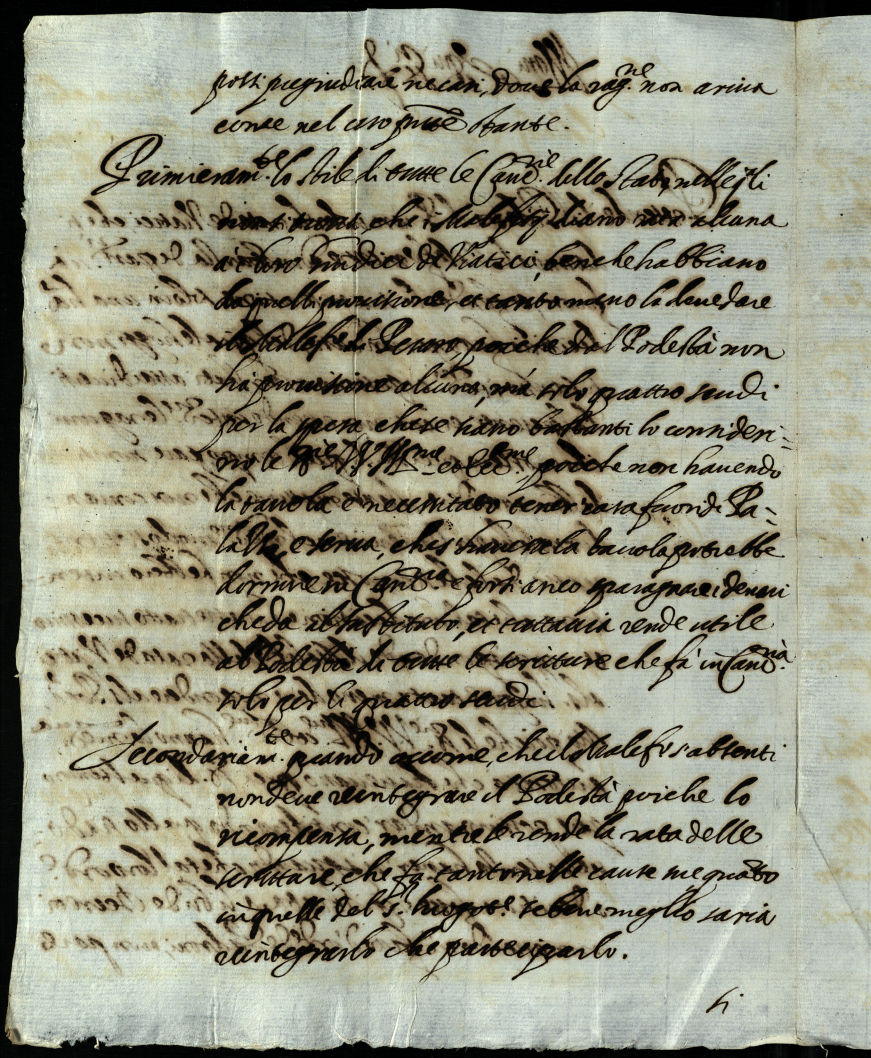 possi pregiudicare ne casi, doue la rag.ne non ariua
come nel caso pnte stante.
Primieram.te lo stile di tutte le Canc.rie dello Stato, nelle q.li
non si troua, che i Malefitij diano rata alcuna
ai loro Giudici de Viatici, benche habbiano
da quelli prouisione, et tanto meno la deue dare
il Malef.o di Pesaro, poiche dal Podestà non
ha prouisione alcuna, mà solo quattro scudi
per la spesa, che se siano bastanti lo consideri=
no le SS.rie VV. Ill.me et Ecc.me, poiche non hauendo
la tauola è necessitato tener casa fuori di Pa=
lazzo, e serua, che s'hauesse la tauola potrebbe
dormire in Canc.ria e forsi anco sparagnare i denari
che dà al sostituto, et tuttauia rende utile
al Podestà di tutte le scritture che fà in Canc.ria
solo per li quattro scudi.
Secondariam.te quando occorre, che il Malef.o s'absenti
non deue reintegrare il Podestà poiche lo
ricompensa, mentre le rende la rata delle
scritture, che fa tanto nelle cause sue quãto
in quelle del S.r luogot.e se bene meglio saria
reintegrarlo che parteciparlo.
Li